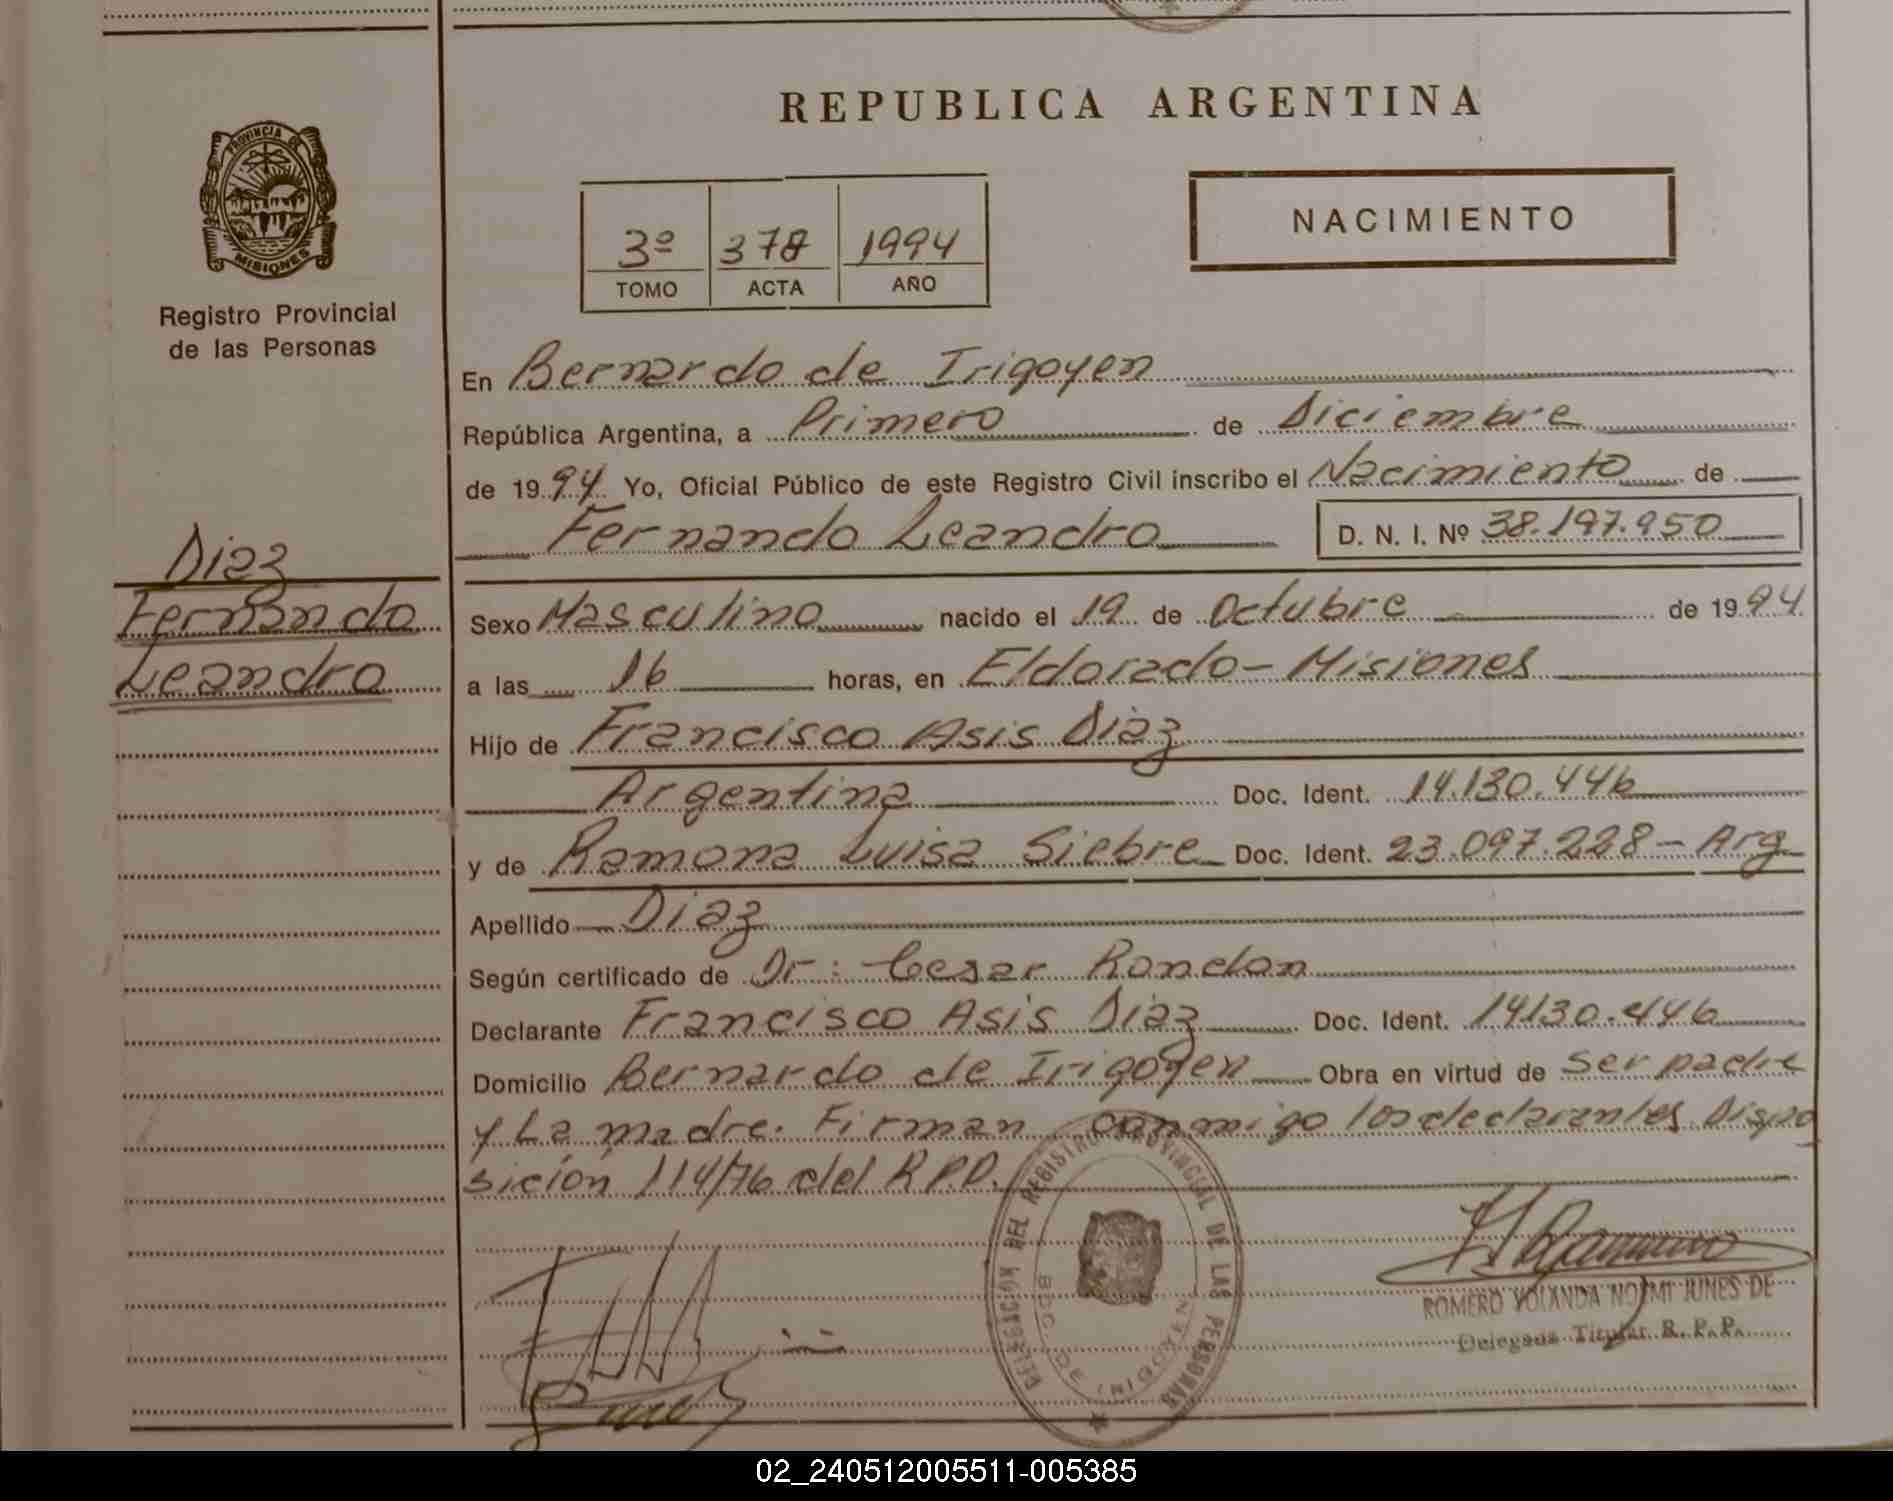 REPUBLICA ARGENTINA
PROVINCIA DE
MISIONES
Registro Provincial
de las Personas
3º 378 1994
TOMO ACTA AÑO
NACIMIENTO
En Bernardo de Irigoyen
República Argentina, a Primero de Diciembre
de 1994 Yo, Oficial Público de este Registro Civil inscribo el Nacimiento de
Fernando Leandro D. N. I. Nº 38.197.950
Diaz
Fernando
Leandro
Sexo Masculino nacido el 19 de Octubre de 1994
a las 16 horas, en Eldorado - Misiones
Hijo de Francisco Asis Diaz
Argentina Doc. Ident. 14.130.446
y de Ramona Luisa Siebre Doc. Ident. 23.097.228 - Arg
Apellido Diaz
Según certificado de Dr: Cesar Rondon
Declarante Francisco Asis Diaz Doc. Ident. 14130.446
Domicilio Bernardo de Irigoyen Obra en virtud de ser padre
y La madre. Firman conmigo los declarantes. Dispo
sición 114/76 del R.P.P.
DELEGACIÓN DEL REGISTRO PROVINCIAL DE LAS PERSONAS
BDO. DE IRIGOYEN
ROMERO YOLANDA NOEMI JUNES DE
Delegada Titular R. P. P.
02_240512005511-005385